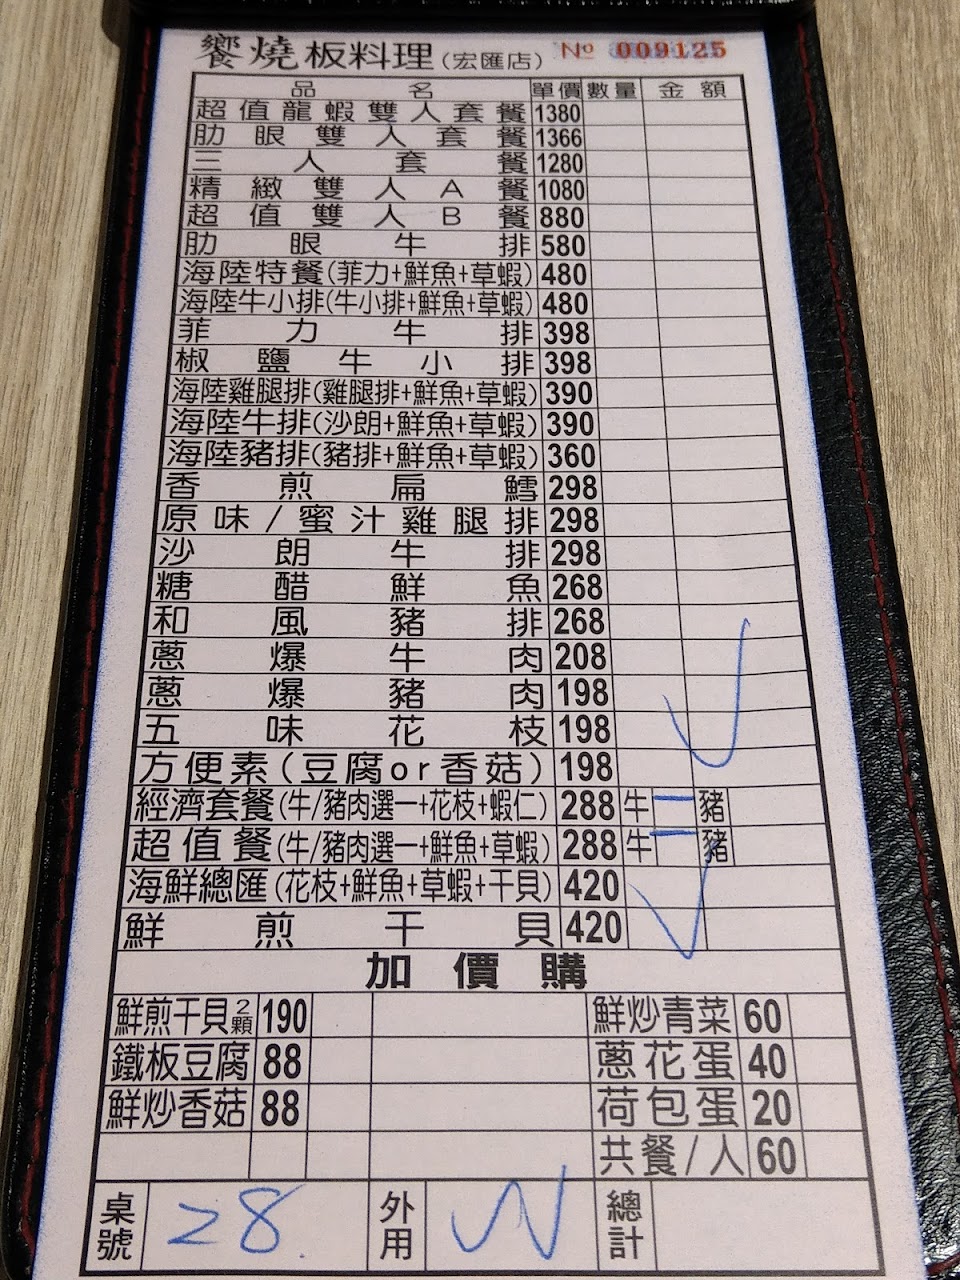 饗燒板料理(宏匯店) Nº 009125
品名 單價 數量 金額
超值龍蝦雙人套餐 1380
肋眼雙人套餐 1366
三人套餐 1280
精緻雙人A餐 1080
超值雙人B餐 880
肋眼牛排 580
海陸特餐(菲力+鮮魚+草蝦) 480
海陸牛小排(牛小排+鮮魚+草蝦) 480
菲力牛排 398
椒鹽牛小排 398
海陸雞腿排(雞腿排+鮮魚+草蝦) 390
海陸牛排(沙朗+鮮魚+草蝦) 390
海陸豬排(豬排+鮮魚+草蝦) 360
香煎扁鱈 298
原味/蜜汁雞腿排 298
沙朗牛排 298
糖醋鮮魚 268
和風豬排 268
蔥爆牛肉 208
蔥爆豬肉 198
五味花枝 198
方便素(豆腐or香菇) 198
經濟套餐(牛/豬肉選一+花枝+蝦仁) 288 牛 豬
超值餐(牛/豬肉選一+鮮魚+草蝦) 288 牛 豬
海鮮總匯(花枝+鮮魚+草蝦+干貝) 420
鮮煎干貝 420
加價購
鮮煎干貝2顆 190 鮮炒青菜 60
鐵板豆腐 88 蔥花蛋 40
鮮炒香菇 88 荷包蛋 20
共餐/人 60
桌號 28. 外用 總計